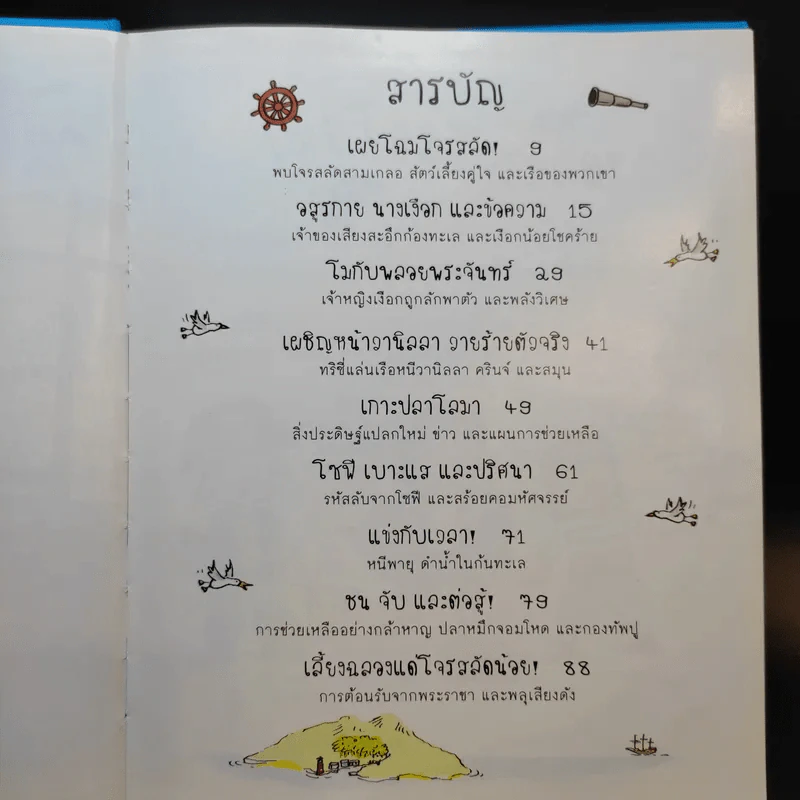 สารบัญ
เผยโฉมโจรสลัด! 9
พบโจรสลัดสามเกลอ สัตว์เลี้ยงคู่ใจ และเรือของพวกเขา
อสุรกาย นางเงือก และข้อความ 15
เจ้าของเสียงสะอึกก้องทะเล และเงือกน้อยโชคร้าย
โมกับพลอยพระจันทร์ 29
เจ้าหญิงเงือกถูกลักพาตัว และพลังวิเศษ
เผชิญหน้าวานิลลา วายร้ายตัวจริง 41
ทริซี่แล่นเรือหนีวานิลลา ครินจ์ และสมุน
เกาะปลาโลมา 49
สิ่งประดิษฐ์แปลกใหม่ ข่าว และแผนการช่วยเหลือ
โซฟี เบาะแส และปริศนา 61
รหัสลับจากโซฟี และสร้อยคอมหัศจรรย์
แข่งกับเวลา! 71
หนีพายุ ดำน้ำในก้นทะเล
ชน จับ และต่อสู้! 79
การช่วยเหลืออย่างกล้าหาญ ปลาหมึกจอมโหด และกองทัพปู
เลี้ยงฉลองแด่โจรสลัดน้อย! 88
การต้อนรับจากพระราชา และพลุเสียงดัง